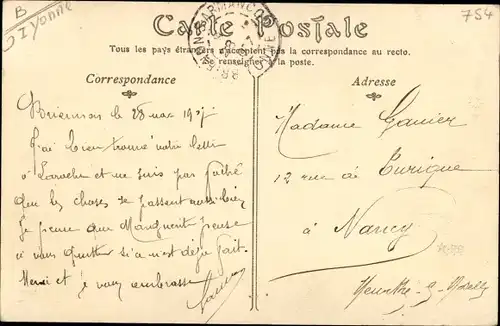 B
Iyonne
754
Carte Postale
Tous les pays étrangers n'acceptent pas la correspondance au recto.
Se renseigner à la poste.
Correspondance
Adresse
Brienon le 28 1907
J'ai bien trouvé votre lettre
à Laroche et ne suis pas faché
que les choses se passent aussi bien
Je pense que Marguerite pense
à vous quitter si ce n'est déjà fait.
Merci et je vous embrasse
Madame Ganier
12 rue de Turique
à Nancy
Meurthe-&-Moselle